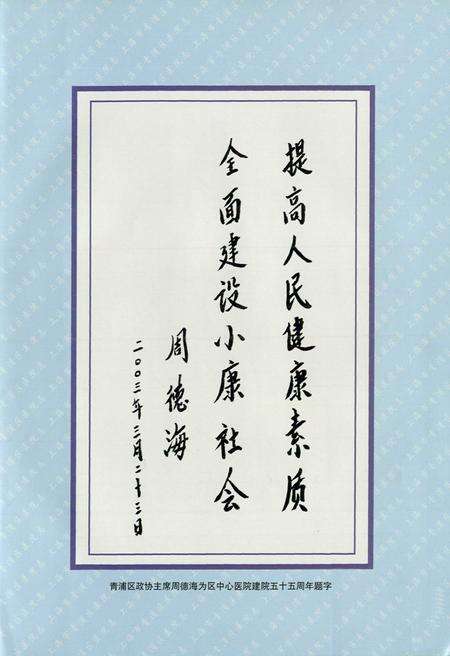 提高人民健康素质
全面建设小康社会
周德海
二〇〇三年三月二十三日
青浦区政协主席周德海为区中心医院建院五十五周年题字